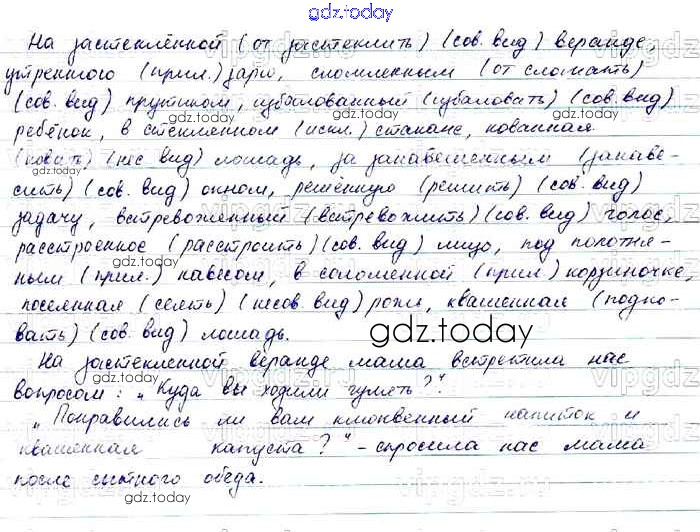 gdz.today
На застеклённой (от застеклить) (сов. вид) веранде,
утреннюю (прил.) зарю, сломленным (от сломать)
(сов. вид) прутиком, избалованный (избаловать) (сов. вид)
ребёнок, в стеклянном (искл.) стакане, кованная
(ковать) (нес вид) лошадь, за занавешенным (занаве-
сить) (сов. вид) окном, решённую (решить) (сов. вид)
задачу, встревоженный (встревожить) (сов. вид) голос,
расстроенное (расстроить) (сов. вид) лицо, под полотня-
ным (прил.) навесом, в соломенной (прил) корзиночке,
посеянная (сеять) (несов. вид) рожь, квашенная (подко-
вать) (сов. вид) лошадь.
gdz.today
На застекленной веранде мама встретила нас
вопросом: „Куда вы ходили гулять?".
„Понравились ли вам клюквенный напиток и
квашенная капуста?" - спросила нас мама
после сытного обеда.
gdz.today